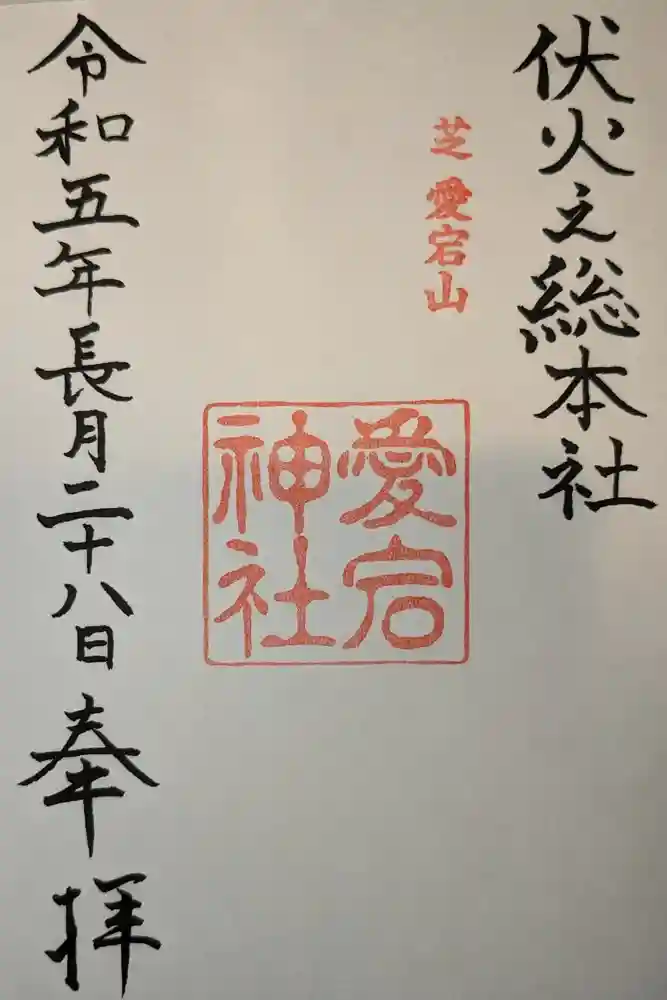 伏火之総本社
芝 愛宕山
愛宕
神社
令和五年長月二十八日 奉拝